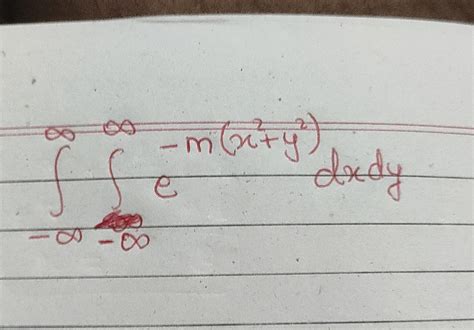 ∫_{-∞}^{∞} ∫_{-∞}^{∞} e^{-m(x²+y²)} dxdy